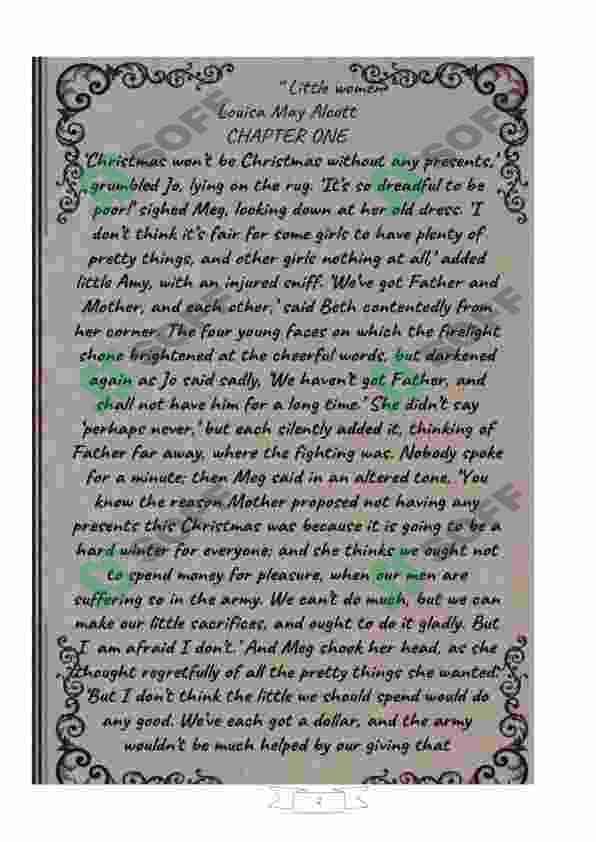 "Little women"
Louisa May Alcott
CHAPTER ONE
'Christmas won't be Christmas without any presents,'
grumbled Jo, lying on the rug. 'It's so dreadful to be
poor!' sighed Meg, looking down at her old dress. 'I
don't think it's fair for some girls to have plenty of
pretty things, and other girls nothing at all,' added
little Amy, with an injured sniff. 'We've got Father and
Mother, and each other,' said Beth contentedly from
her corner. The four young faces on which the firelight
shone brightened at the cheerful words, but darkened
again as Jo said sadly, 'We haven't got Father, and
shall not have him for a long time.' She didn't say
'perhaps never,' but each silently added it, thinking of
Father far away, where the fighting was. Nobody spoke
for a minute; then Meg said in an altered tone, 'You
know the reason Mother proposed not having any
presents this Christmas was because it is going to be a
hard winter for everyone; and she thinks we ought not
to spend money for pleasure, when our men are
suffering so in the army. We can't do much, but we can
make our little sacrifices, and ought to do it gladly. But
I am afraid I don't.' And Meg shook her head, as she
thought regretfully of all the pretty things she wanted.
'But I don't think the little we should spend would do
any good. We've each got a dollar, and the army
wouldn't be much helped by our giving that